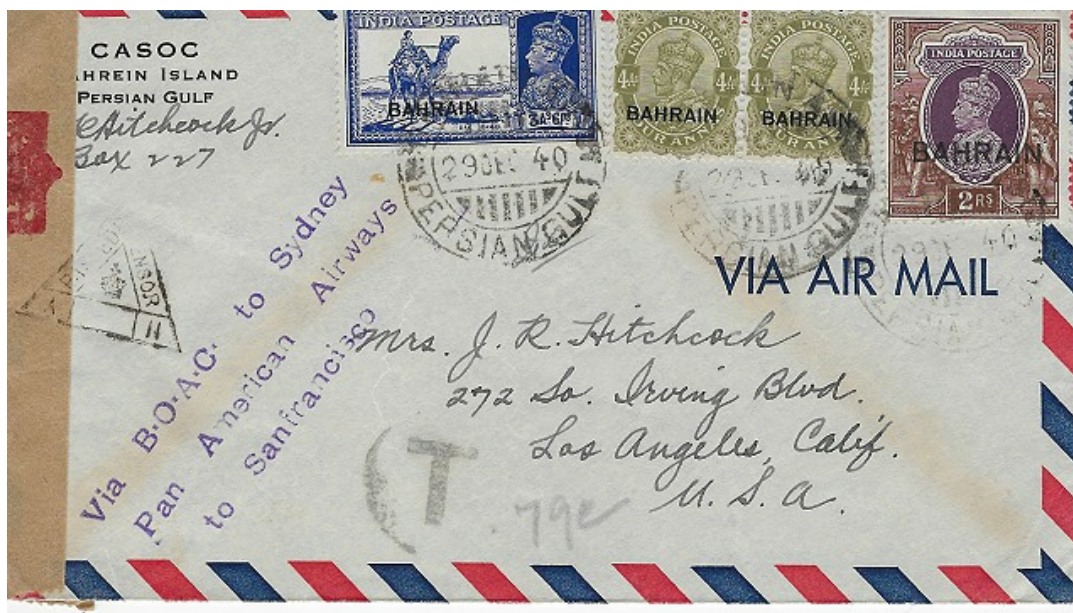 CASOC
AHREIN ISLAND
PERSIAN GULF
Hitchcock Jr.
Box 227
INDIA POSTAGE
BAHRAIN
3As6Ps
INDIA POSTAGE
4As 4As
BAHRAIN
FOUR ANNAS
INDIA POSTAGE
4As 4As
BAHRAIN
INDIA POSTAGE
BAHRAIN
2 RS
29 DEC 40
PERSIAN GULF
29 DEC 40
PERSIAN GULF
29 40
NSOR
11
VIA AIR MAIL
Via B.O.A.C. to Sydney
Pan American Airways
to Sanfrancisco
Mrs. J. R. Hitchcock
272 So. Irving Blvd.
Los Angeles, Calif.
U. S. A.
T
79c